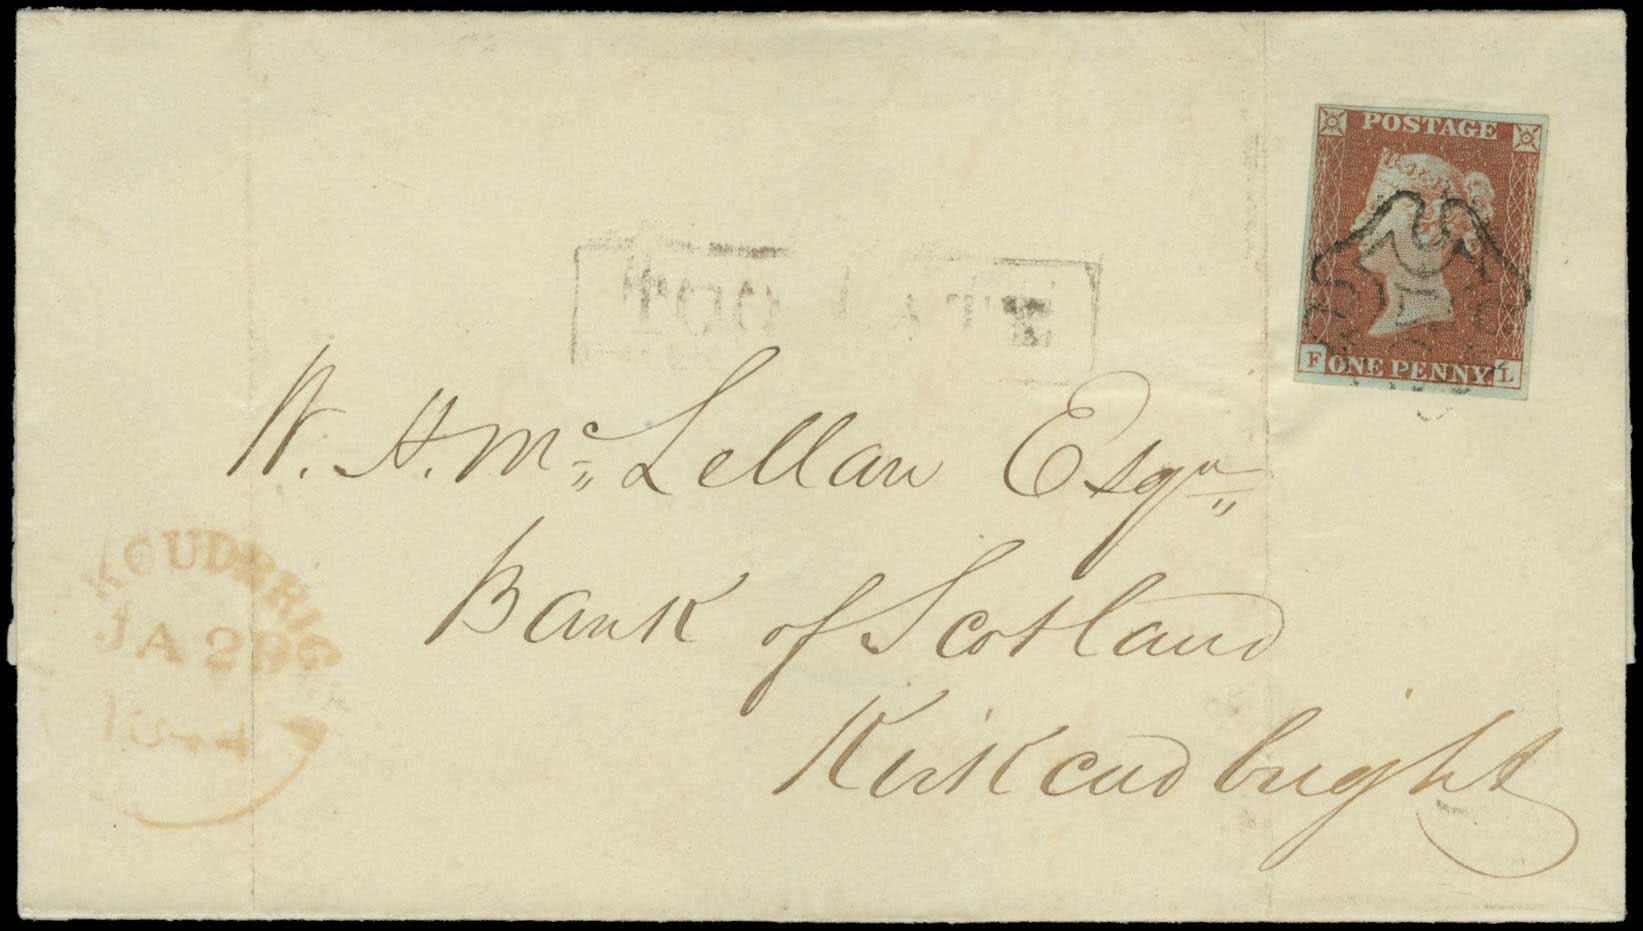 POSTAGE
F ONE PENNY L
W. H. Mc Lellan Esqr
Bank of Scotland
Kirkcudbright
KCUDBRIG
JA 29
1844